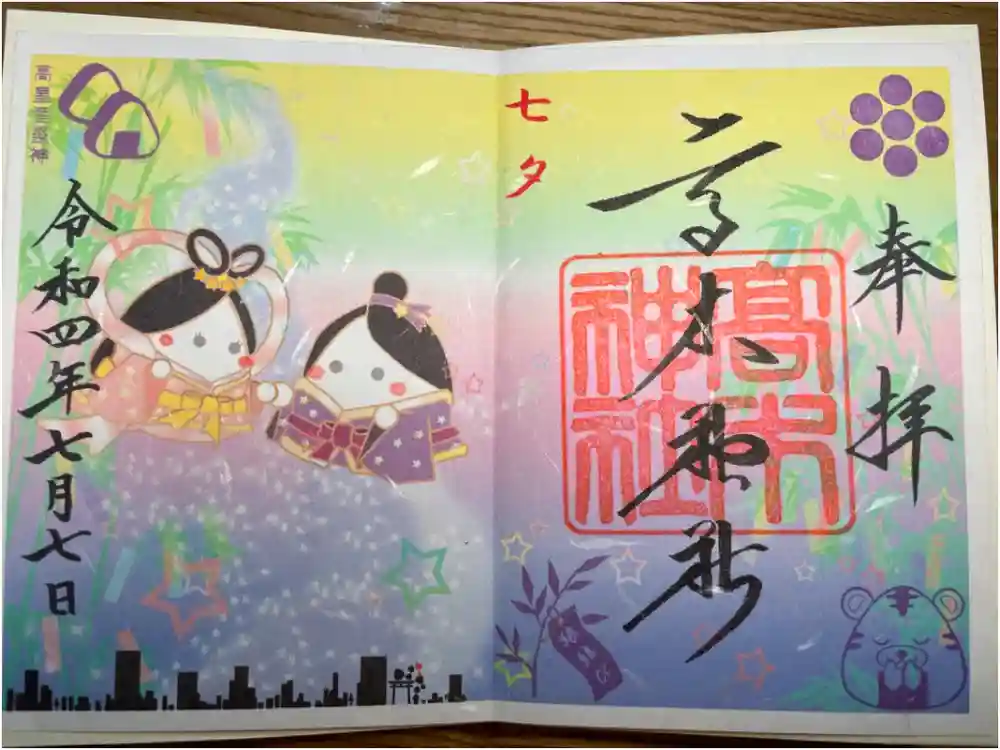 奉拝
高木神社
高木
神社
七夕
高皇産霊神
令和四年七月七日